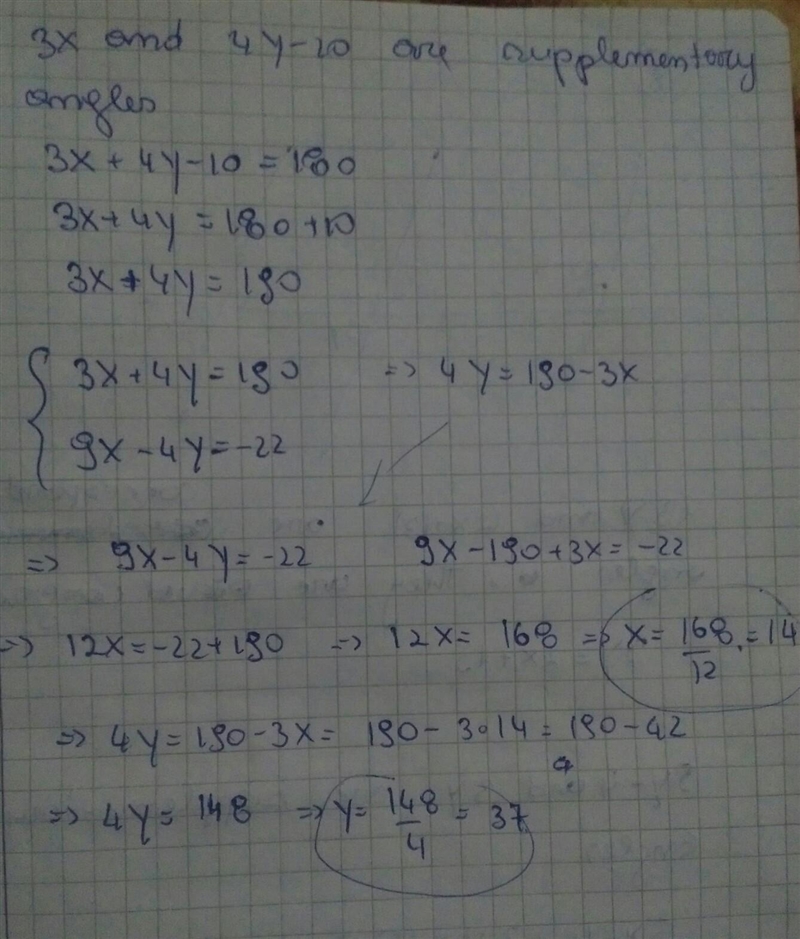 3x and 4y-10 are supplementary
angles
3x + 4y-10 = 180
3x+4y = 180+10
3x+4y = 190
3x+4y = 190 => 4y = 190-3x
9x-4y = -22
=> 9x-4y = -22 9x-190+3x = -22
=> 12x = -22+190 => 12x = 168 => x = 168/12 = 14
=> 4y = 190-3x = 190-3∘14 = 190-42
=> 4y = 148 => y = 148/4 = 37